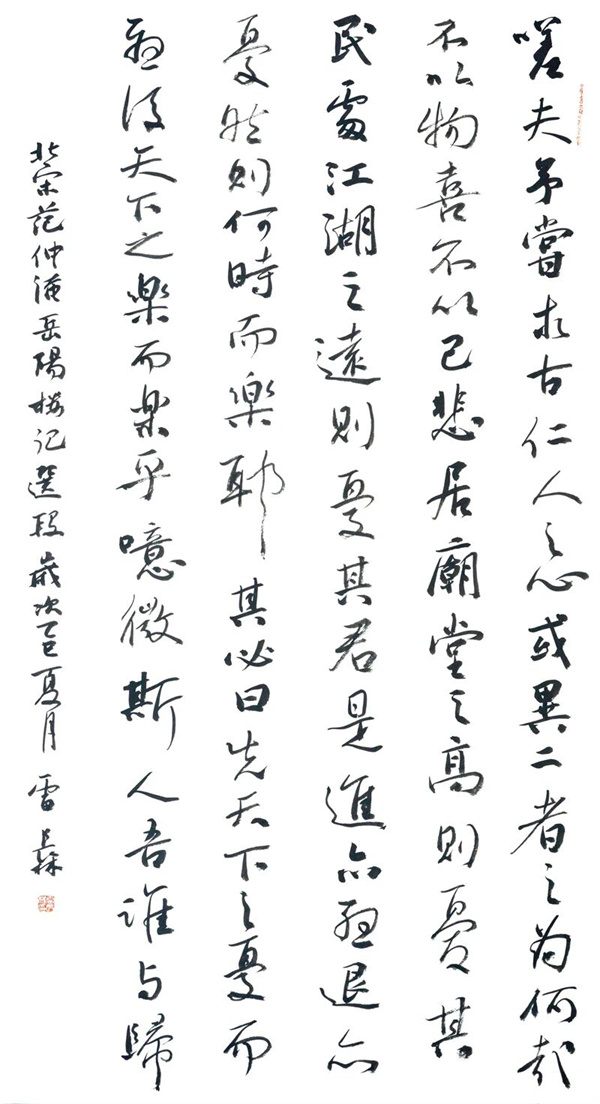 嗟夫予嘗求古仁人之心或異二者之為何哉
不以物喜不以己悲居廟堂之高則憂其
民處江湖之遠則憂其君是進亦憂退亦
憂然則何時而樂耶其必曰先天下之憂而
憂後天下之樂而樂乎噫微斯人吾誰与歸
北宋范仲淹岳陽樓記選段歲次乙巳夏月 雷